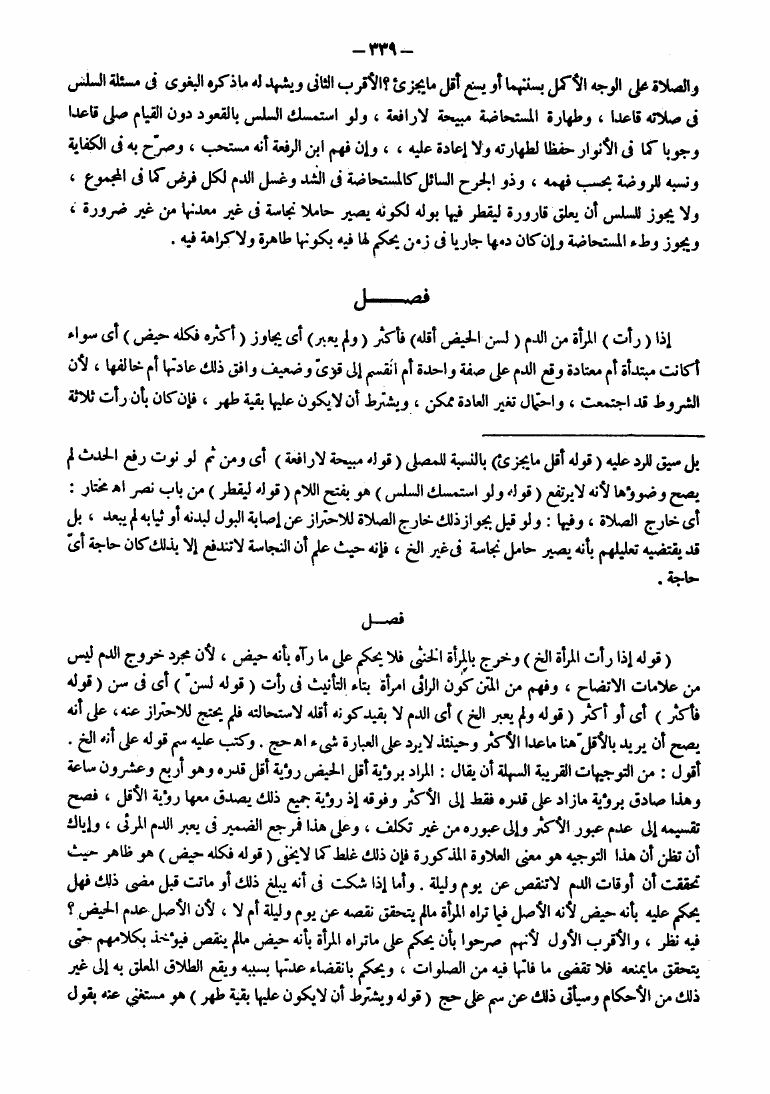 – ٣٣٩ –
والصلاة على الوجه الأكمل بسننهما أو يسع أقل مايجزئ ؟ الأقرب الثانى ويشهد له ماذكره البغوى فى مسئلة السلس
فى صلاته قاعدا ، وطهارة المستحاضة مبيحة لارافعة ، ولو استمسك السلس بالقعود دون القيام صلى قاعدا
وجوبا كما فى الأنوار حفظا لطهارته ولا إعادة عليه ، ، وإن فهم ابن الرفعة أنه مستحب ، وصرّح به فى الكفاية
ونسبه للروضة بحسب فهمه ، وذو الجرح السائل كالمستحاضة فى الشد وغسل الدم لكل فرض كما فى المجموع ،
ولا يجوز للسلس أن يعلق قارورة ليقطر فيها بوله لكونه يصير حاملا نجاسة فى غير معدنها من غير ضرورة ،
ويجوز وطء المستحاضة وإن كان دمها جاريا فى زمن يحكم لها فيه بكونها طاهرة ولا كراهة فيه .
فصــــل
إذا ( رأت ) المرأة من الدم ( لسن الحيض أقله) فأكثر ( ولم يعبر) أى يجاوز ( أكثره فكله حيض ) أى سواء
أكانت مبتدأة أم معتادة وقع الدم على صفة واحدة أم انقسم إلى قوىّ وضعيف وافق ذلك عادتها أم خالفها ، لأن
الشروط قد اجتمعت ، واحتمال تغير العادة ممكن ، ويشترط أن لايكون عليها بقية طهر ، فإن كان بأن رأت ثلاثة
بل سيق للرد عليه ( قوله أقل مايجزئ) بالنسبة للمصلى ( قوله مبيحة لارافعة ) أى ومن ثم لو نوت رفع الحدث لم
يصح وضوؤها لأنه لايرتفع ( قوله ولو استمسك السلس ) هو بفتح اللام ( قوله ليقطر ) من باب نصر اه مختار :
أى خارج الصلاة ، وفيها : ولو قيل بجواز ذلك خارج الصلاة للاحتراز عن إصابة البول لبدنه أو ثيابه لم يبعد ، بل
قد يقتضيه تعليلهم بأنه يصير حامل نجاسة فى غير الخ ، فإنه حيث علم أن النجاسة لاتندفع إلا بذلك كان حاجة أىّ
حاجة .
فصــل
( قوله إذا رأت المرأة الخ ) وخرج بالمرأة الخنثى فلا يحكم على ما رآه بأنه حيض ، لأن مجرد خروج الدم ليس
من علامات الاتضاح ، وفهم من المتن كون الرائى امرأة بتاء التأنيث فى رأت ( قوله لسن ) أى فى سن ( قوله
فأكثر ) أى أو أكثر ( قوله ولم يعبر الخ ) أى الدم لا بقيد كونه أقله لاستحالته فلم يحتج للاحتراز عنه، على أنه
يصح أن يريد بالأقل هنا ماعدا الأكثر وحينئذ لايرد على العبارة شىء اه حج . وكتب عليه سم قوله على أنه الخ .
أقول : من التوجيهات القريبة السهلة أن يقال : المراد برؤية أقل الحيض رؤية أقل قدره وهو أربع وعشرون ساعة
وهذا صادق برؤية مازاد على قدره فقط إلى الأكثر وفوقه إذ رؤية جميع ذلك يصدق معها رؤية الأقل ، فصح
تقسيمه إلى عدم عبور الأكثر وإلى عبوره من غير تكلف ، وعلى هذا فمرجع الضمير فى يعبر الدم المرئى ، وإياك
أن تظن أن هذا التوجيه هو معنى العلاوة المذكورة فإن ذلك غلط كما لايخفى ( قوله فكله حيض ) هو ظاهر حيث
تحققت أن أوقات الدم لاتنقص عن يوم وليلة . وأما إذا شكت فى أنه يبلغ ذلك أو ماتت قبل مضى ذلك فهل
يحكم عليه بأنه حيض لأنه الأصل فيما تراه المرأة مالم يتحقق نقصه عن يوم وليلة أم لا ، لأن الأصل عدم الحيض ؟
فيه نظر ، والأقرب الأول لأنهم صرحوا بأن يحكم على ماتراه المرأة بأنه حيض مالم ينقص فيؤخذ بكلامهم حتى
يتحقق مايمنعه فلا تقضى ما فاتها فيه من الصلوات ، ويحكم بانقضاء عدتها بسببه ويقع الطلاق المعلق به إلى غير
ذلك من الأحكام وسيأتى ذلك عن سم على حج ( قوله ويشترط أن لايكون عليها بقية طهر ) هو مستغنى عنه بقول